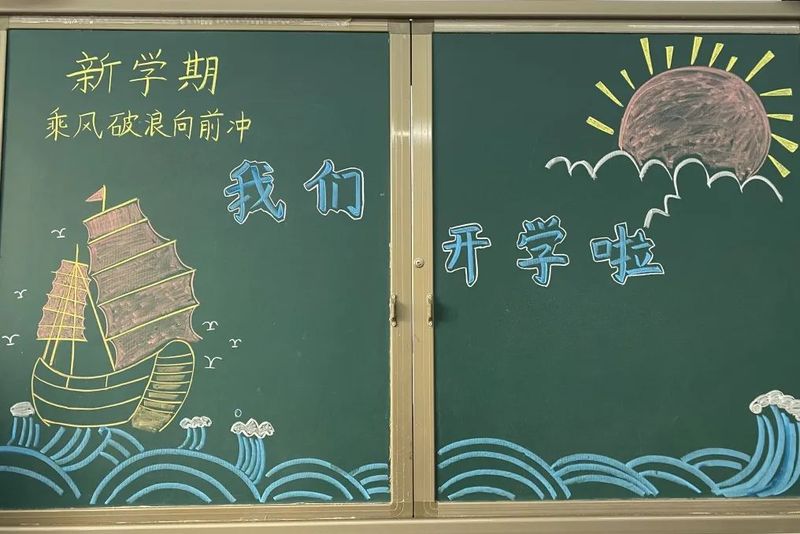 新学期
乘风破浪向前冲
我们
开学啦